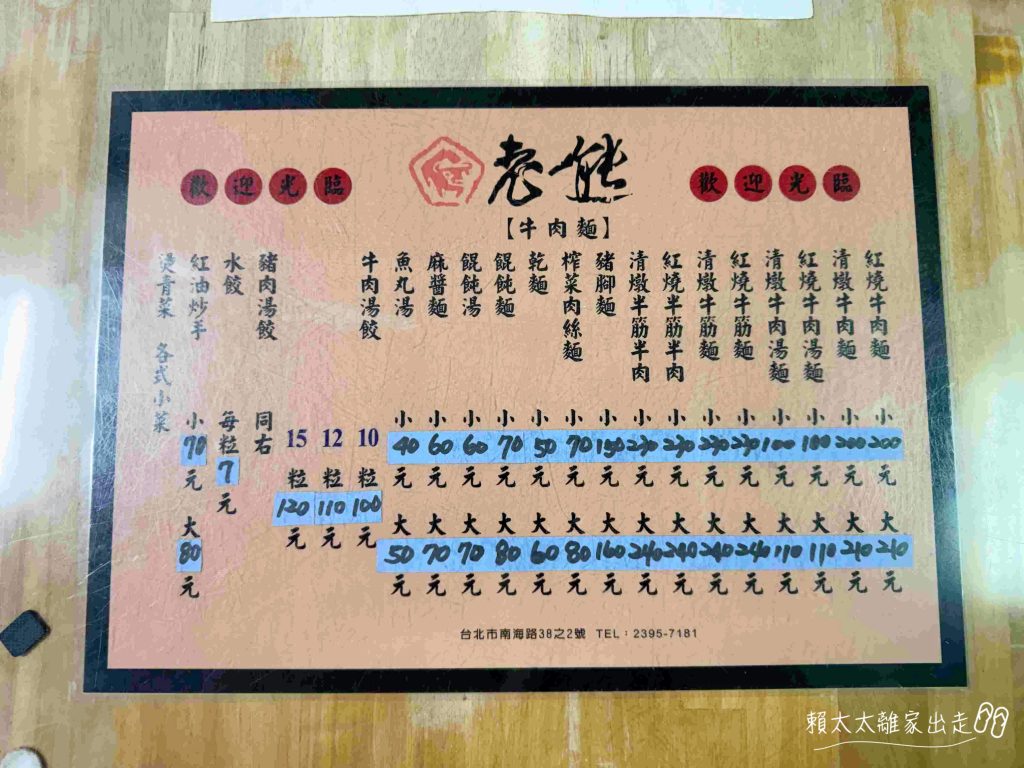 歡迎光臨
老熊
歡迎光臨
【牛肉麵】
紅燒牛肉麵 小200元 大210元
清燉牛肉麵 小200元 大210元
紅燒牛肉湯麵 小100元 大110元
清燉牛肉湯麵 小100元 大110元
紅燒牛筋麵 小230元 大240元
清燉牛筋麵 小230元 大240元
紅燒半筋半肉 小230元 大240元
清燉半筋半肉 小230元 大240元
豬腳麵 小150元 大160元
榨菜肉絲麵 小70元 大80元
乾麵 小50元 大60元
餛飩麵 小70元 大80元
餛飩湯 小60元 大70元
麻醬麵 小60元 大70元
魚丸湯 小40元 大50元
牛肉湯餃 10粒100元
12粒110元
15粒120元
豬肉湯餃 同右
水餃 每粒7元
紅油炒手 小70元 大80元
燙青菜 各式小菜
台北市南海路38之2號 TEL：2395-7181
賴太太離家出走